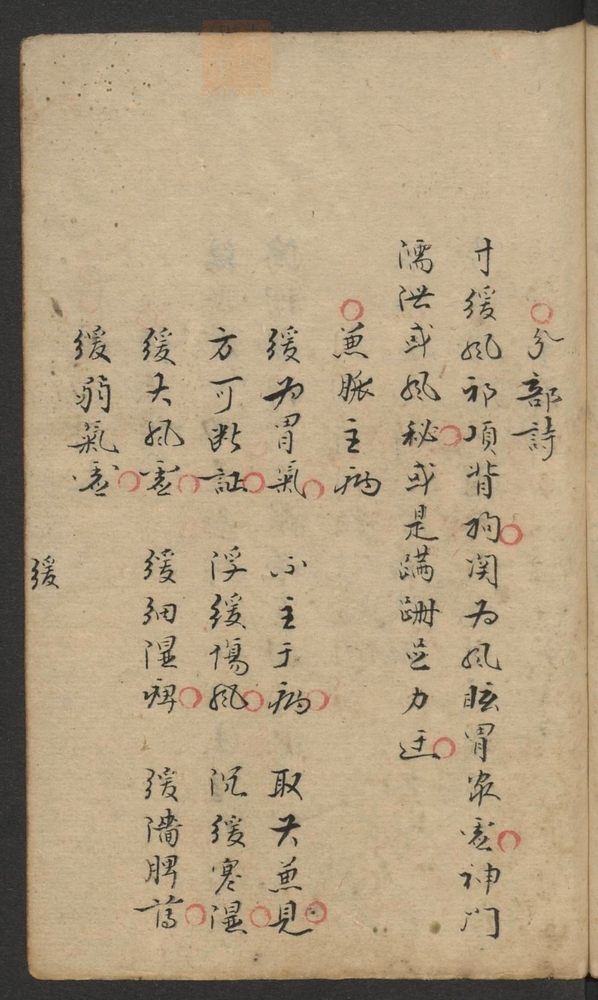 分部詩
寸緩風邪項背拘関為風眩胃家虛神門
濡泄或風秘或是蹣跚足力迂
兼脈主病
緩為胃氣 不主于病 取夫兼見
方可断証 浮緩傷風 沉緩寒濕
緩大風虛 緩細濕痺 緩濇脾
緩弱氣虛
緩